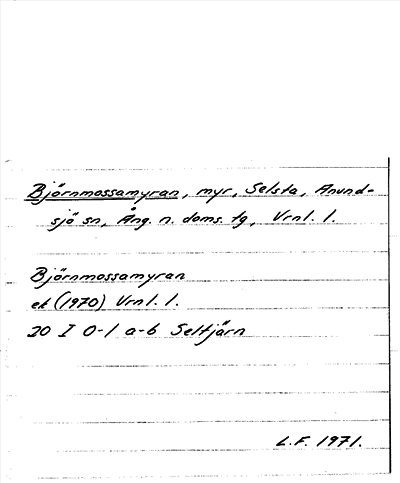 Björnmossamyran, myr, Selsta, Anund-
sjö sn, Ång. n. doms. tg, Vrnl. l.
Björnmossamyran
ek (1970) Vrnl. l.
20 I 0-1 a-b Seltjärn
L.F. 1971.